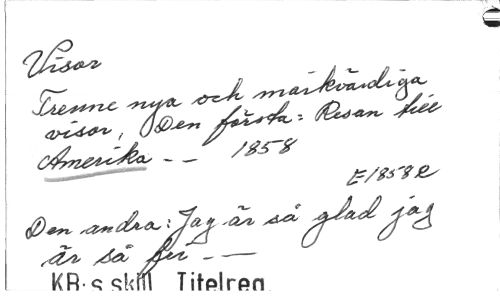 Visor
Trenne nya och märkvärdiga
visor, Den första: Resan till
Amerika -- 1858
E1858R
Den andra: Jag är så glad jag
är så fri --
KB:s skill. Titelreg.